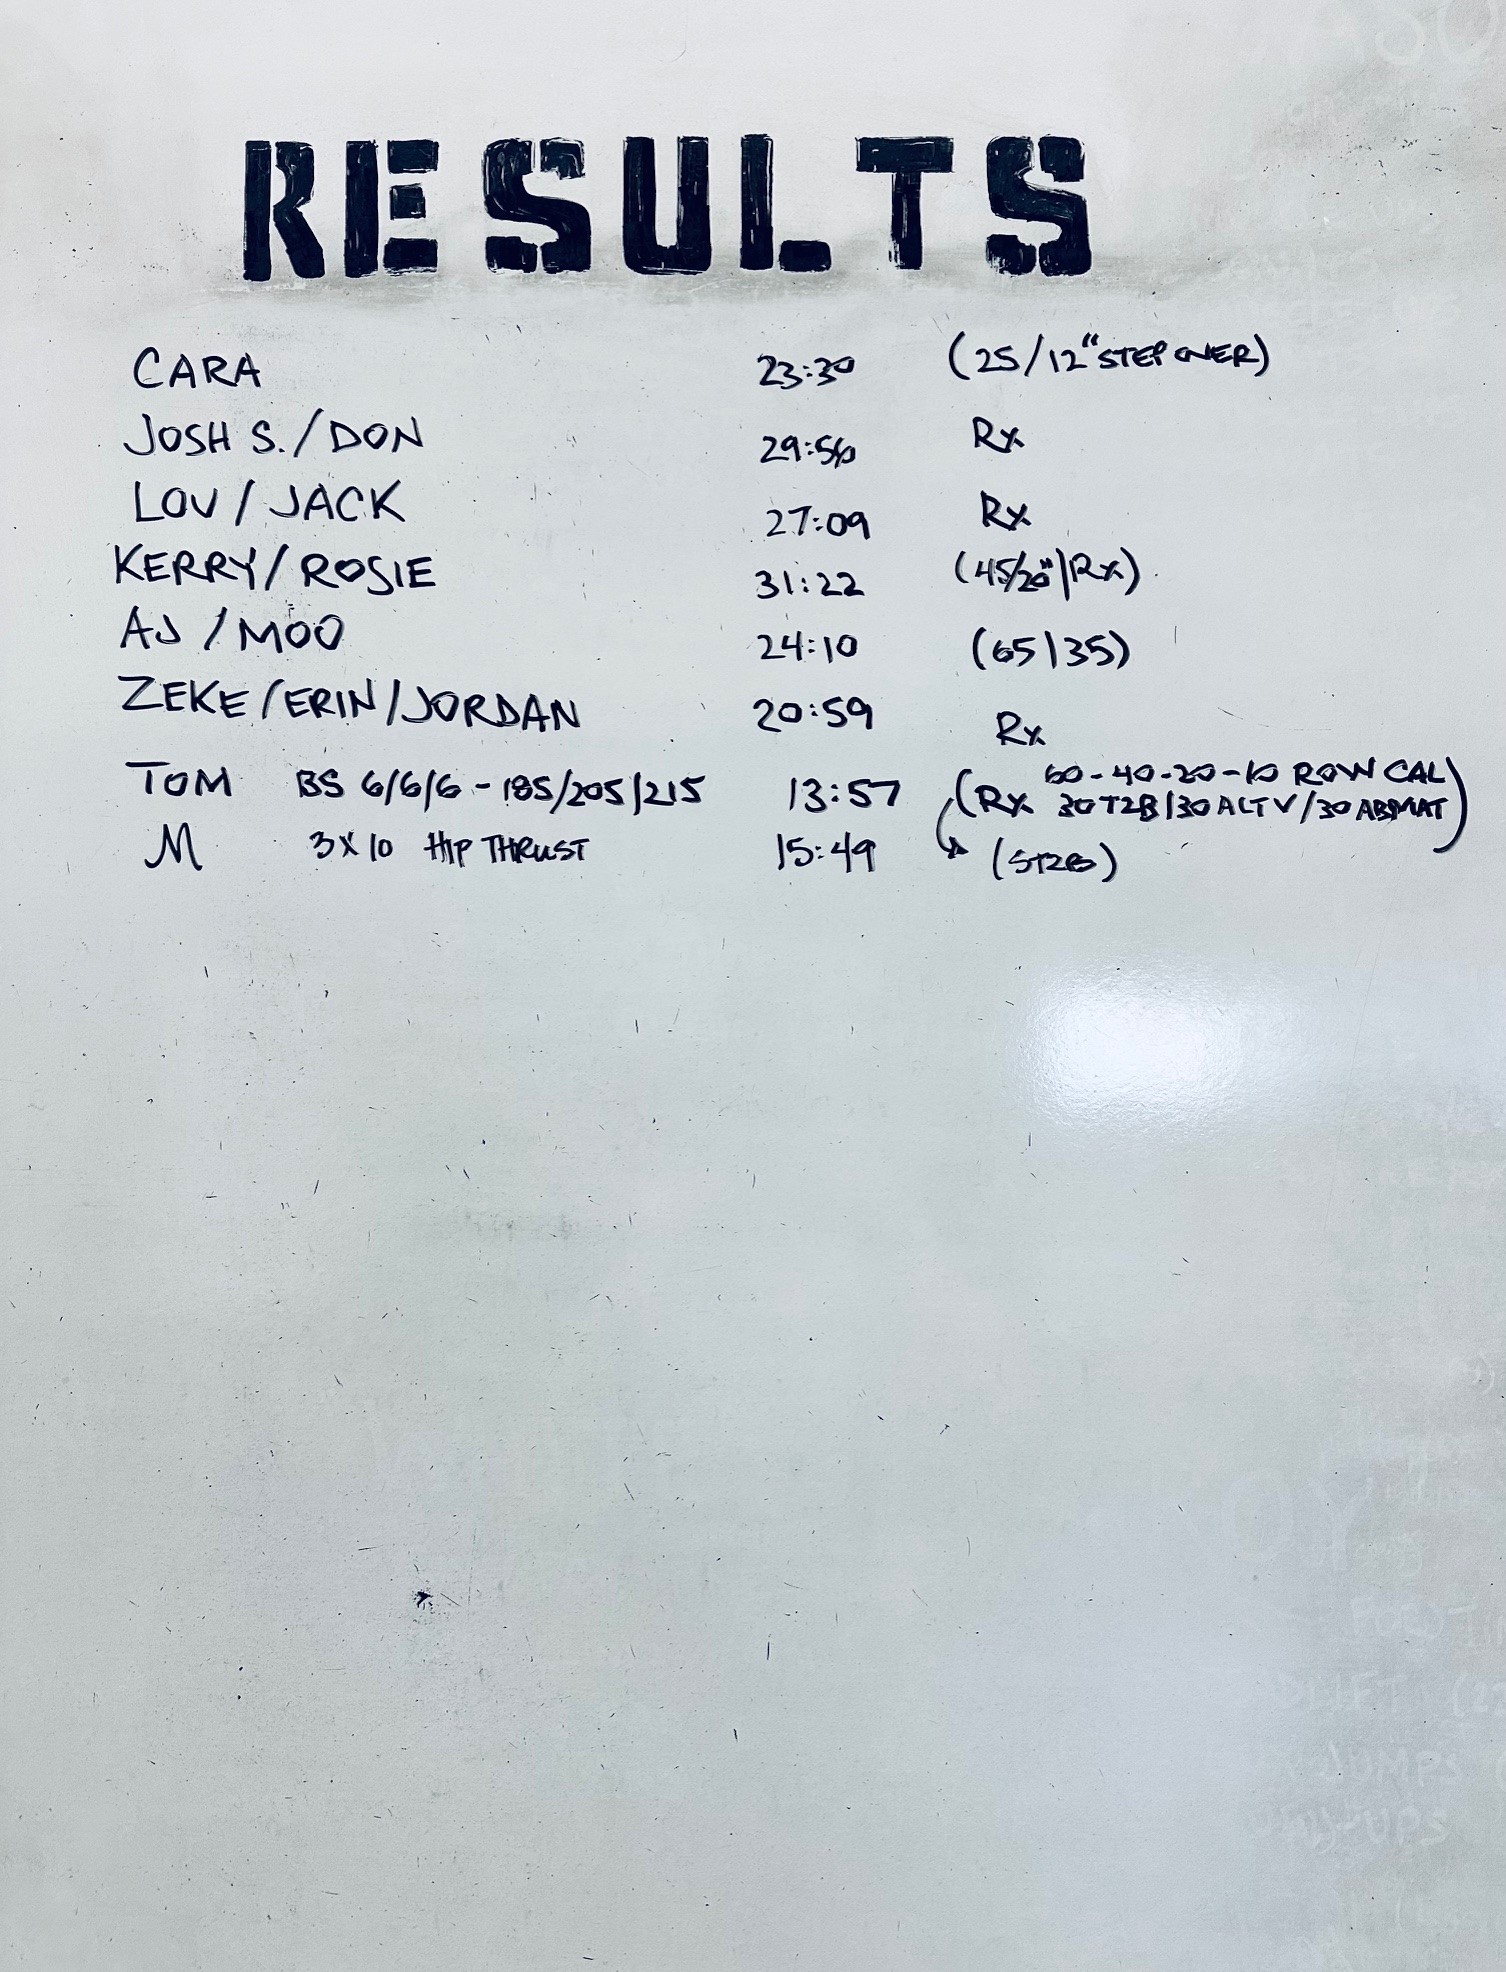 RESULTS
CARA 23:30 (25/12" STEP OVER)
JOSH S./DON 29:56 Rx
LOU / JACK 27:09 Rx
KERRY/ROSIE 31:22 (45/20"|Rx)
AJ / MOO 24:10 (65|35)
ZEKE/ERIN/JORDAN 20:59 Rx
60-40-20-10 ROW CAL
TOM BS 6/6/6 - 185/205/215 13:57 (Rx 30 T2B/30 ALT V/30 ABMAT)
M 3X10 HIP THRUST 15:49 (ST2B)
JUMPS